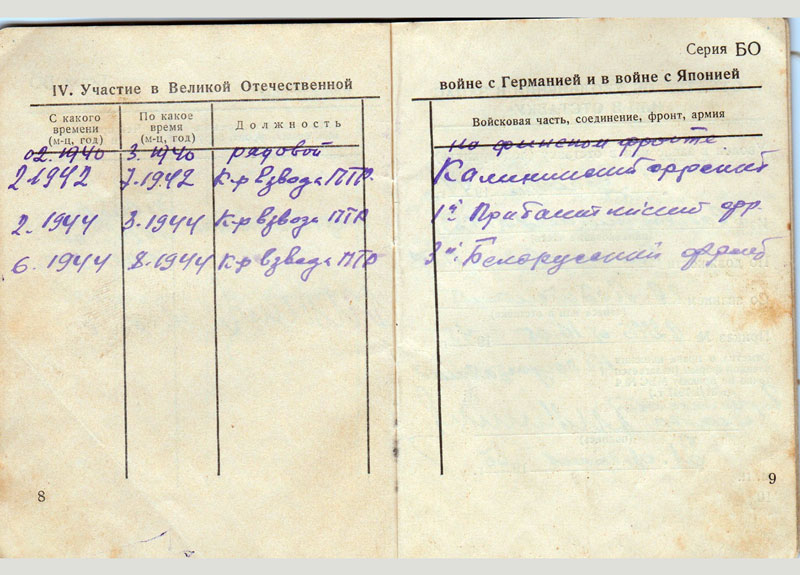 Серия БО
IV. Участие в Великой Отечественной войне с Германией и в войне с Японией
С какого времени (м-ц, год)
По какое время (м-ц, год)
Должность
Войсковая часть, соединение, фронт, армия
02.1940 3.1940 рядовой На финском фронте
2.1942 7.1942 К-р взвода ПТР. Калининский фронт
2.1944 3.1944 К-р взвода ПТР 1й Прибалтийский фр.
6.1944 8.1944 К-р взвода ПТР 3й Белорусский фронт
8
9